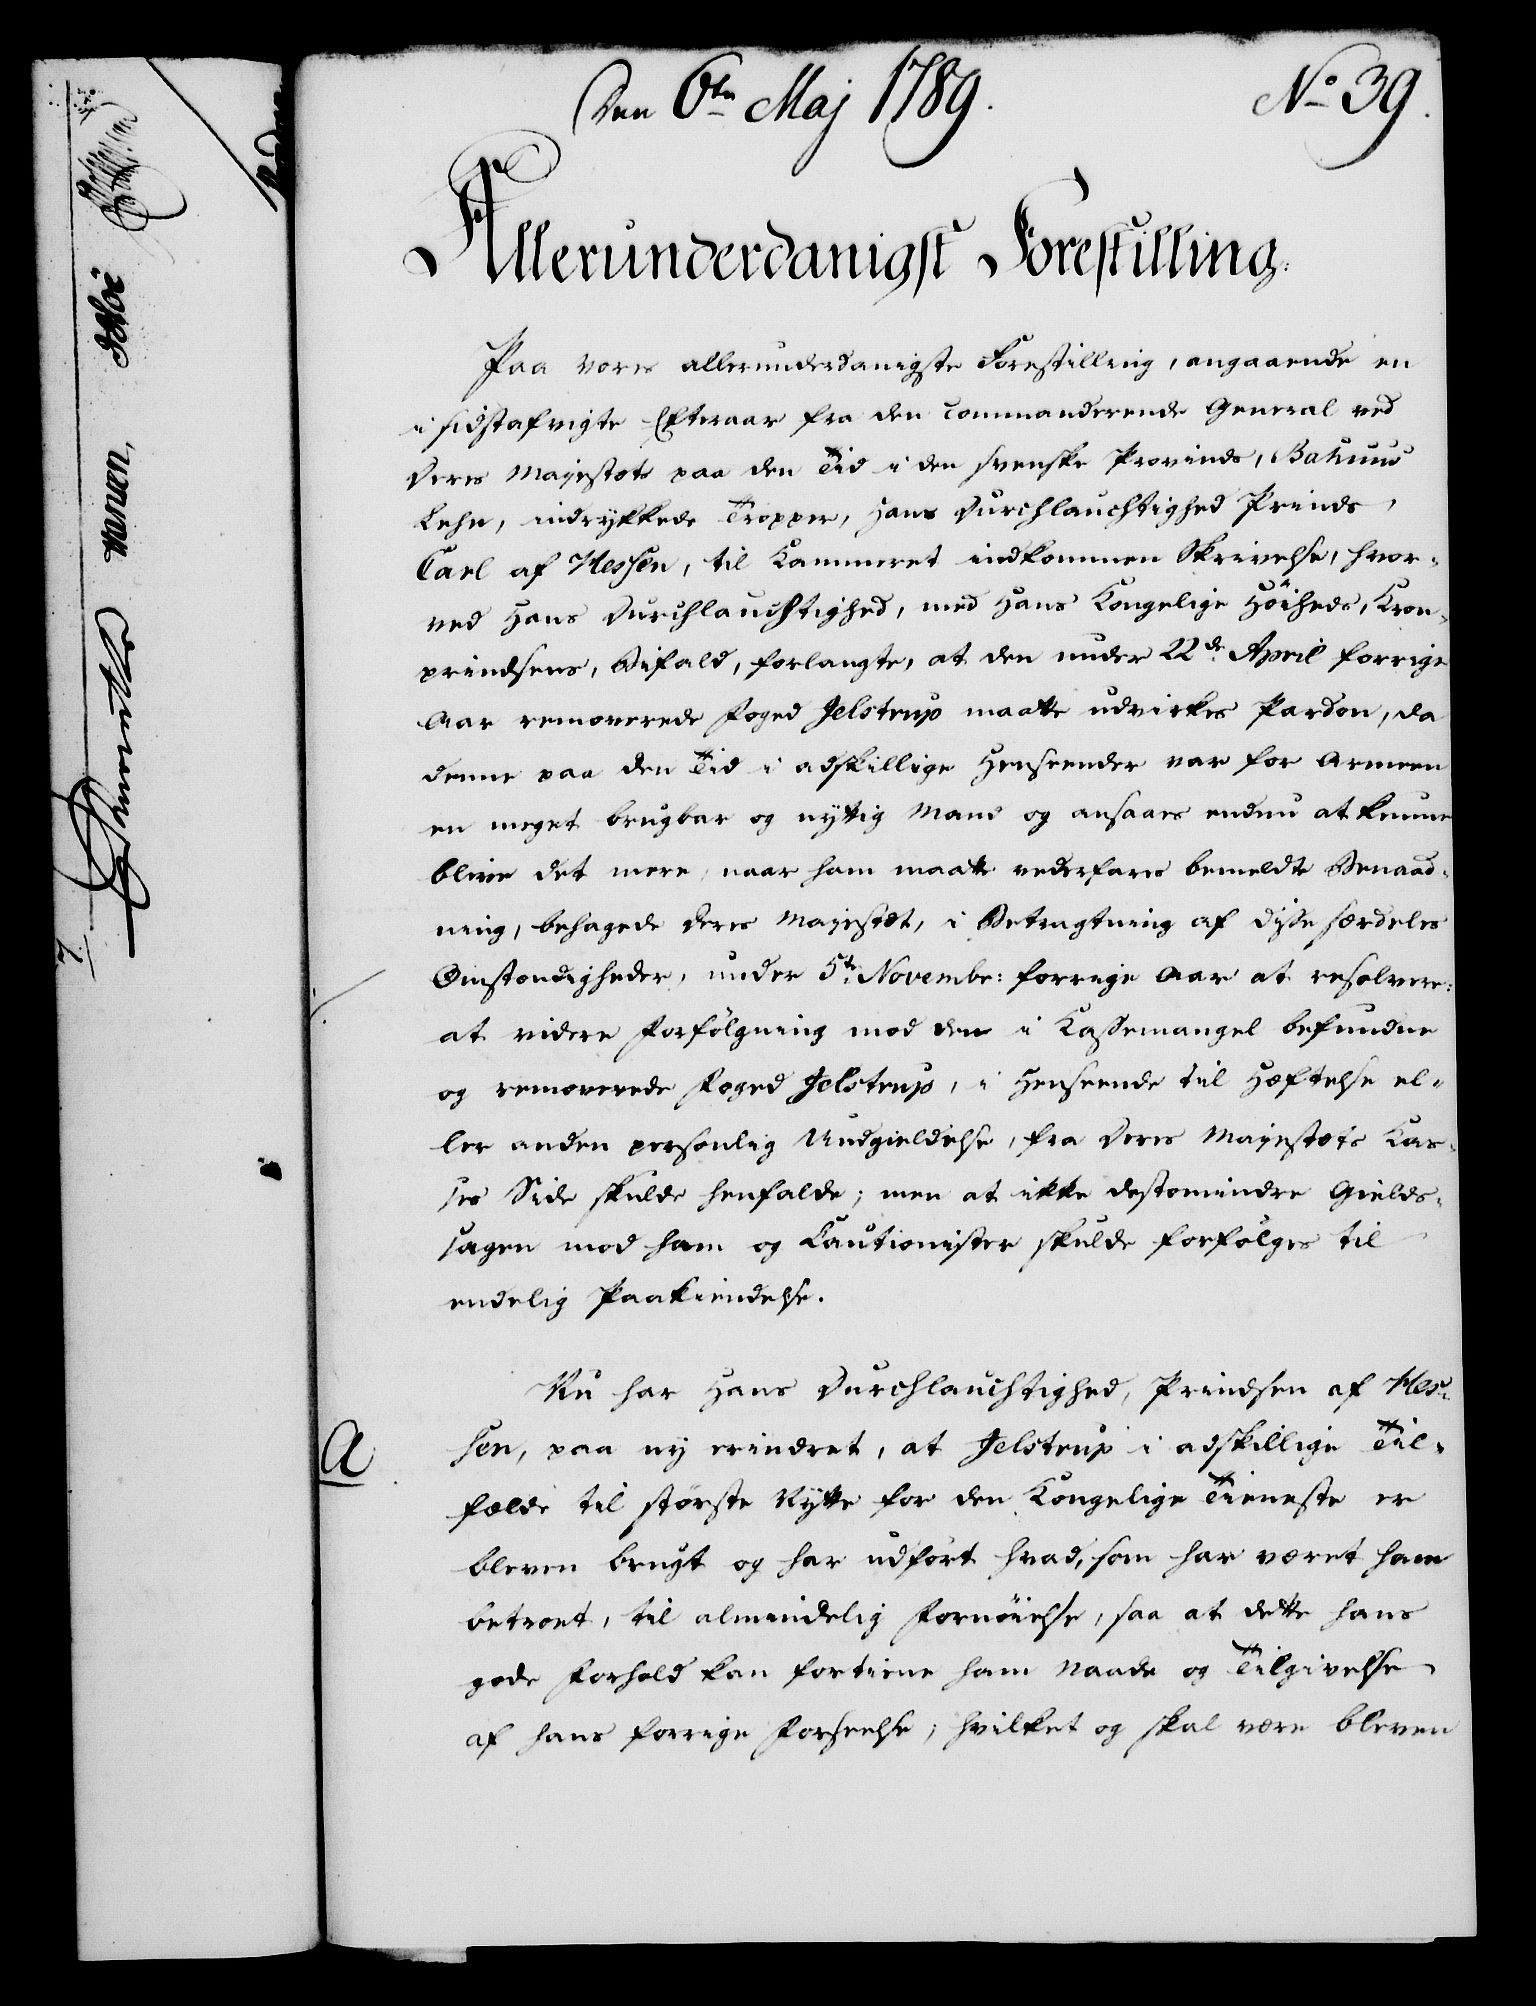 Den 6te Maj 1789.
No 39.
Allerunderdanigst Forestilling.
Paa vores allerunderdanigste Forestilling, angaaende en
i sidstafvigte Efteraar fra den commanderende General ved
Deres Majestæts paa den Tid i den svenske Provinds, Bahuus
Lehn, indrykkede Tropper, Hans Durchlauchtighed Prinds
Carl af Hessen, til Kammeret indkommen Skrivelse, hvor-
ved Hans Durchlauchtighed, med Hans Kongelige Höiheds, Kron-
prindsens, Bifald, forlangte, at den under 22de April forrige
Aar removerede Foged Jelstrup maatte udvirkes Pardon, da
denne paa den Tid i adskillige Henseender var for Armeen
en meget brugbar og nyttig Mand og ansaaes endnu at kunne
blive det mere, naar ham maatte vederfares bemeldte Benaad-
ning, behagede Deres Majestæt, i Betragtning af disse særdeles
Omstændigheder, under 5te Novembr: forrige Aar at resolvere:
at videre Forfölgning mod den i Kassemangel befundne
og removerede Foged Jelstrup, i Henseende til Hæftelse el-
ler anden personlig Undgieldelse, fra Deres Majestæts Kas-
ses Side skulde henfalde; men at ikke destomindre Gields-
sagen mod ham og Cautionister skulde forfölges til
endelig Paakiendelse.
Nu har Hans Durchlauchtighed, Prindsen af Hes-
A
sen, paa ny erindret, at Jelstrup i adskillige Til-
fælde til störste Nytte for den Kongelige Tieneste er
bleven brugt og har udfört hvad, som har været ham
betroet, til almindelig Fornöielse, saa at dette hans
gode Forhold kan fortiene ham Naade og Tilgivelse
af hans forrige Forseelse; hvilket og skal være bleven